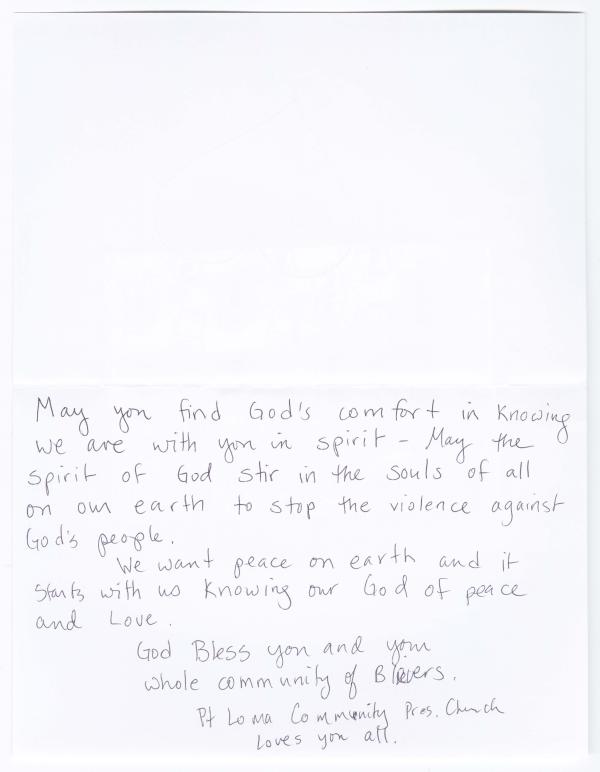 May you find God's comfort in knowing
we are with you in spirit – May the
spirit of God stir in the souls of all
on our earth to stop the violence against
God's people.
We want peace on earth and it
starts with us knowing our God of peace
and Love.
God Bless you and your
whole community of Blievers.
Pt Loma Community Pres. Church
Loves you all.